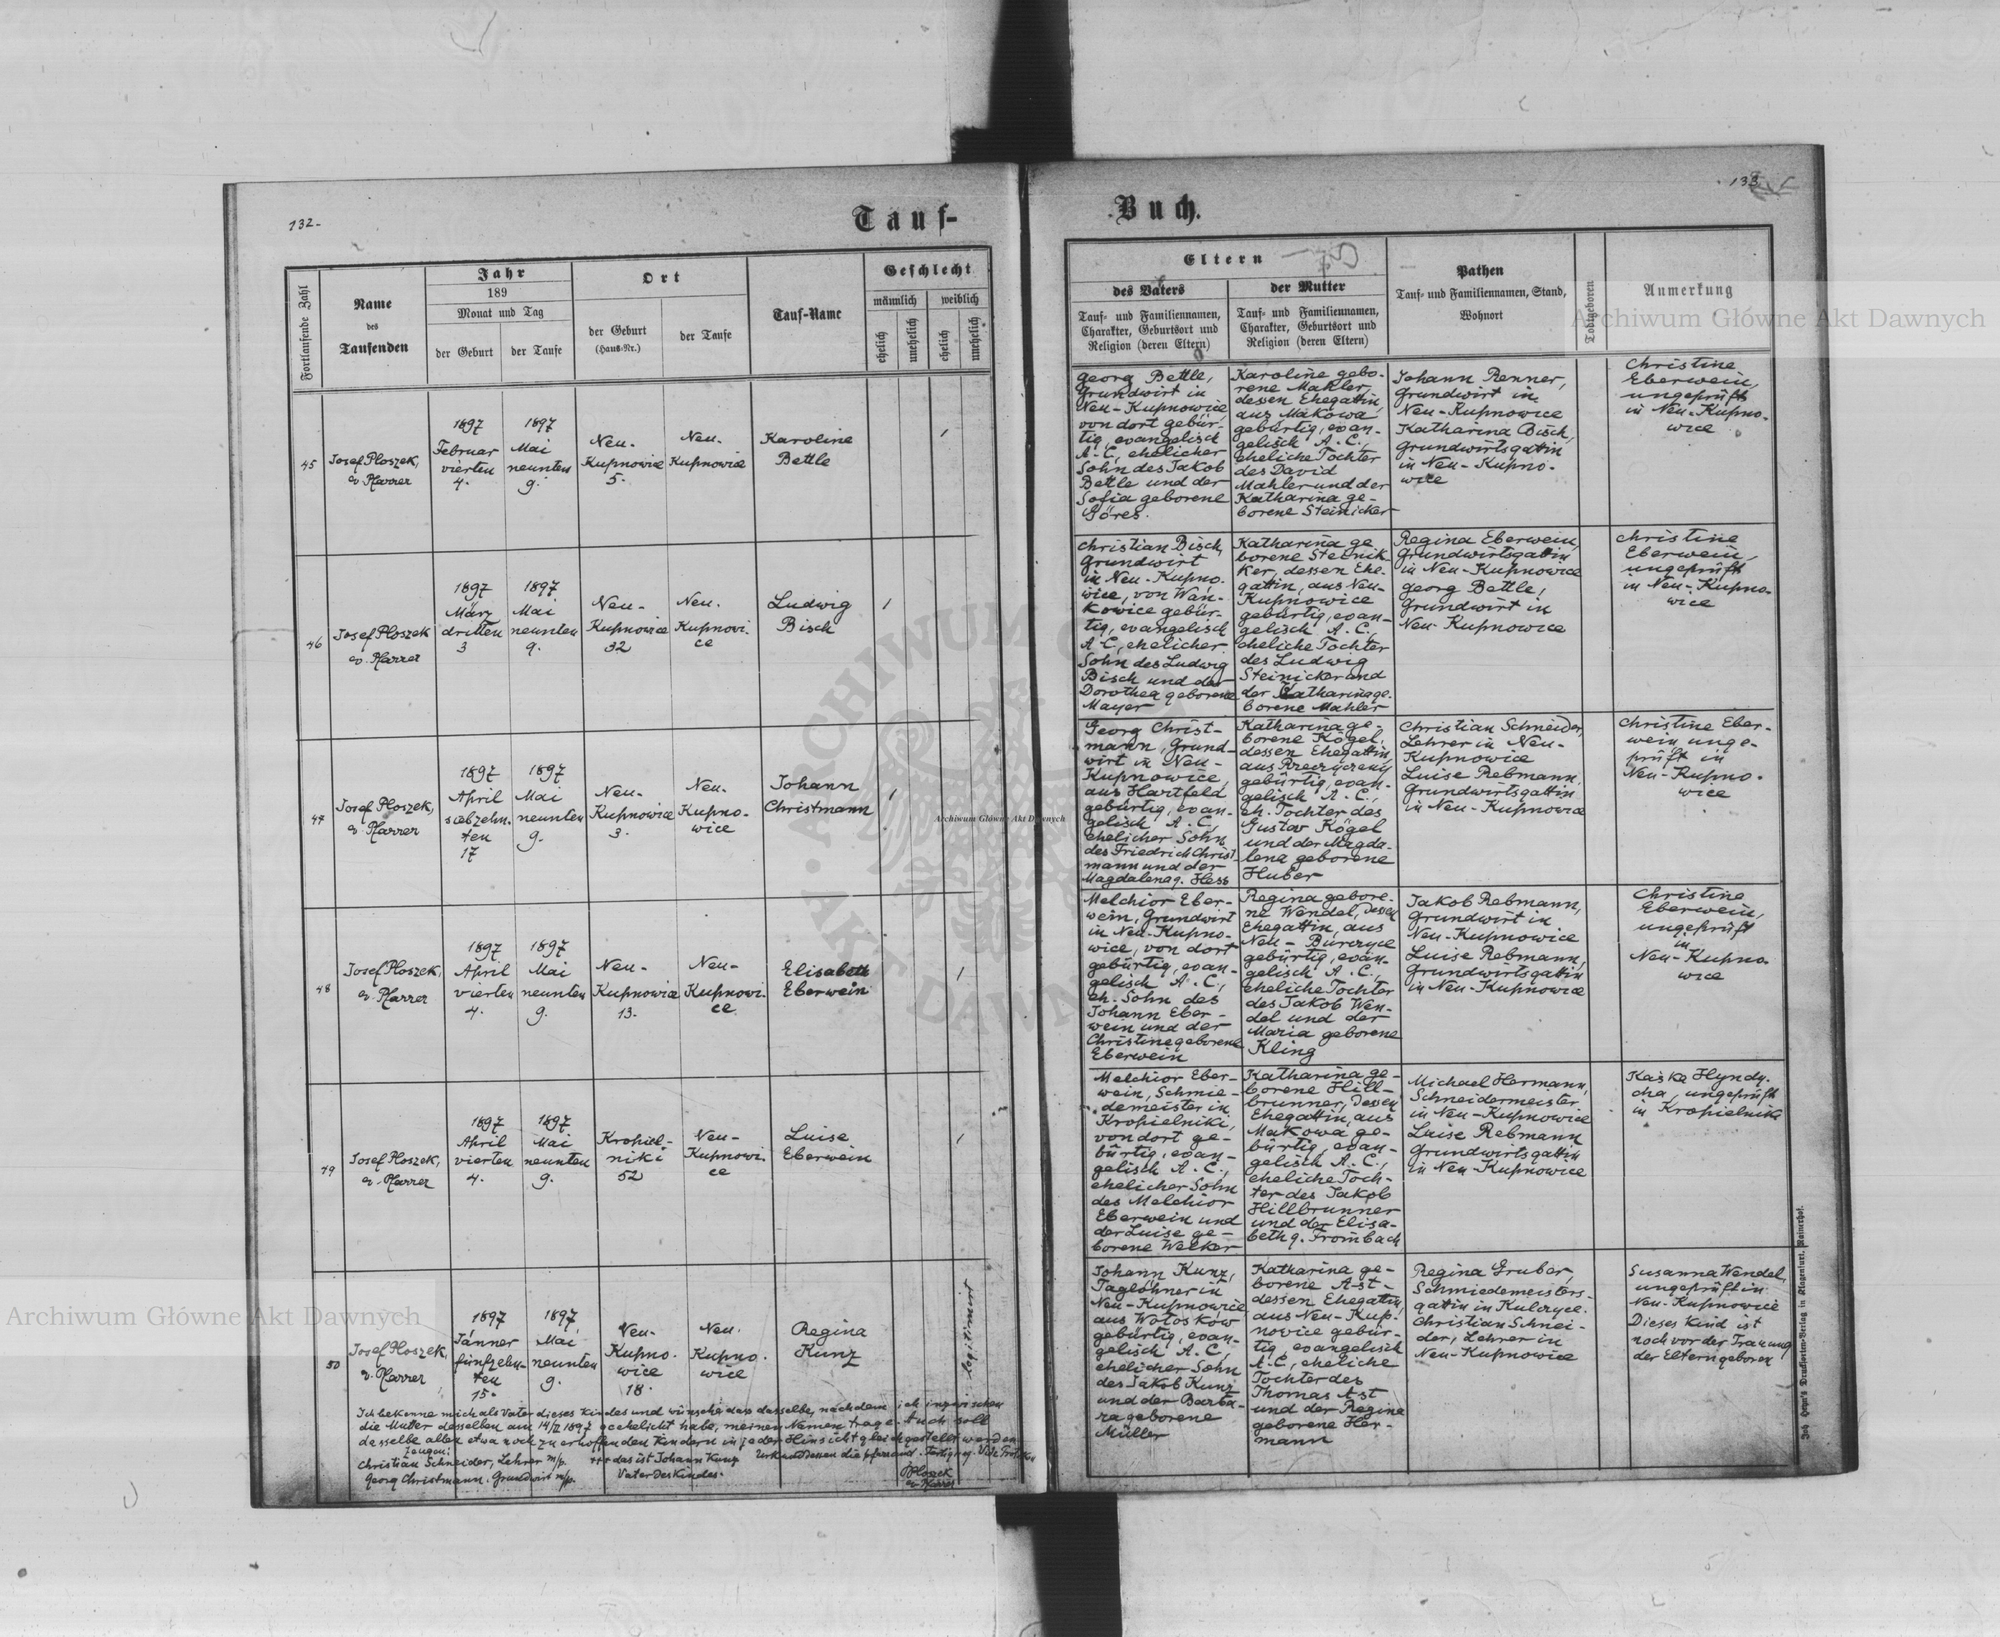 132.
Tauf-
Fortlaufende Zahl
Name
des
Taufenden
Jahr
189
Monat und Tag
der Geburt
der Taufe
Ort
der Geburt
(Haus-Nr.)
der Taufe
Tauf-Name
Geschlecht
männlich
weiblich
ehelich
unehelich
ehelich
unehelich
45
Josef Ploszek,
ev. Pfarrer
1897
Februar
vierten
4.
1897
Mai
neunten
9.
Neu-
Kupnowice
5.
Neu-
Kupnowice
Karoline
Bettle
1
46
Josef Ploszek
ev. Pfarrer
1897
März
dritten
3
1897
Mai
neunten
9.
Neu-
Kupnowice
32
Neu-
Kupnowi-
ce
Ludwig
Bisch
1
47
Josef Ploszek,
ev. Pfarrer
1897
April
siebzehn-
ten
17
1897
Mai
neunten
9.
Neu-
Kupnowice
3.
Neu-
Kupno-
wice
Johann
Christmann
1
48
Josef Ploszek,
ev. Pfarrer
1897
April
vierten
4.
1897
Mai
neunten
9.
Neu-
Kupnowice
13.
Neu-
Kupnowi-
ce
Elisabeth
Eberwein
1
49
Josef Ploszek,
ev. Pfarrer
1897
April
vierten
4.
1897
Mai
neunten
9.
Kropiel-
niki
52
Neu-
Kupnowi-
ce
Luise
Eberwein
1
50
Josef Ploszek,
ev. Pfarrer
1897
Jänner
fünfzehn-
ten
15.
1897
Mai
neunten
9.
Neu-
Kupno-
wice
18.
Neu-
Kupno-
wice
Regina
Kunz
legitimirt
Ich bekenne mich als Vater dieses Kindes und wünsche dass dasselbe, nachdem ich inzwischen
die Mutter desselben am 14/II 1897 geehelicht habe, meinen Namen trage. Auch soll
dasselbe allen etwa noch zu erhoffenden Kindern in jeder Hinsicht gleichgestellt werden
Zeugen:
Christian Schneider, Lehrer m/p. +++ das ist Johann Kunz Urkund dessen die
Georg Christmann, Grundwirt m/p. Vater des Kindes.
Ploszek
ev. Pfarrer
133
Buch.
Eltern
des Vaters
Tauf- und Familiennamen,
Charakter, Geburtsort und
Religion (deren Eltern)
der Mutter
Tauf- und Familiennamen,
Charakter, Geburtsort und
Religion (deren Eltern)
Pathen
Tauf- und Familiennamen, Stand,
Wohnort
Todtgeboren
Anmerkung
Georg Bettle,
Grundwirt in
Neu-Kupnowice,
von dort gebür-
tig, evangelisch
A. C., ehelicher
Sohn des Jakob
Betle und der
Sofia geborene
Göres.
Karoline gebo-
rene Mahler,
dessen Ehegattin,
aus Makowa
gebürtig, evan-
gelisch A. C.,
eheliche Tochter
des David
Mahler und der
Katharina ge-
borene Steinicker
Johann Renner,
Grundwirt in
Neu-Kupnowice
Katharina Bisch,
Grundwirtsgattin
in Neu-Kupno-
wice
Christine
Eberwein,
ungeprüft
in Neu-Kupno-
wice
Christian Bisch,
Grundwirt
in Neu-Kupno-
wice, von Wan-
kowice gebür-
tig, evangelisch
A. C., ehelicher
Sohn des Ludwig
Bisch und der
Dorothea geborene
Mayer
Katharina ge
borene Steinik-
ker, dessen Ehe-
gattin, aus Neu-
Kupnowice
gebürtig, evan-
gelisch A. C.,
eheliche Tochter
des Ludwig
Steinicker und
der Katharina ge-
borene Mahler
Regina Eberwein,
Grundwirtsgattin
in Neu-Kupnowice
Georg Bettle,
Grundwirt in
Neu-Kupnowice
Christine
Eberwein,
ungeprüft
in Neu-Kupno-
wice
Georg Christ-
mann, Grund-
wirt in Neu-
Kupnowice,
aus Hartfeld
gebürtig, evan-
gelisch A. C.,
ehelicher Sohn
des Friedrich Christ-
mann und der
Magdalena g. Hess
Katharina ge-
borene Kögel,
dessen Ehegattin,
aus
gebürtig, evan-
gelisch A. C.,
eh. Tochter des
Gustav Kögel
und der Magda-
lena geborene
Huber
Christian Schneider,
Lehrer in Neu-
Kupnowice
Luise Rebmann,
Grundwirtsgattin
in Neu-Kupnowice
Christine Eber-
wein, unge-
prüft in
Neu-Kupno-
wice
Melchior Eber-
wein, Grundwirt
in Neu-Kupno-
wice, von dort
gebürtig, evan-
gelisch A. C.,
eh. Sohn des
Johann Eber-
wein und der
Christine geborene
Eberwein
Regina gebore-
ne Wendel, dessen
Ehegattin, aus
Neu-Burczyce
gebürtig, evan-
gelisch A. C.,
eheliche Tochter
des Jakob Wen-
del und der
Maria geborene
Kling
Jakob Rebmann,
Grundwirt in
Neu-Kupnowice
Luise Rebmann,
Grundwirtsgattin
in Neu-Kupnowice
Christine
Eberwein,
ungeprüft
in
Neu-Kupno-
wice
Melchior Eber-
wein, Schmie-
demeister in
Kropielniki,
von dort ge-
bürtig, evan-
gelisch A. C.,
ehelicher Sohn
des Melchior
Eberwein und
der Luise ge-
borene Welker
Katharina ge-
borene Hill-
brunner, dessen
Ehegattin, aus
Makowa ge-
bürtig, evan-
gelisch A. C.,
eheliche Toch-
ter des Jakob
Hillbrunner
und der Elisa-
beth g. Frombach
Michael Hermann,
Schneidermeister
in Neu-Kupnowice
Luise Rebmann
Grundwirtsgattin
in Neu-Kupnowice
Kaśka Hyndy-
cha, ungeprüft
in Kropielniki
Johann Kunz,
Taglöhner in
Neu-Kupnowice
aus Wołosków
gebürtig, evan-
gelisch A. C.,
ehelicher Sohn
des Jakob Kunz
und der Barba-
ra geborene
Müller
Katharina ge-
borene Ast-
dessen Ehegattin,
aus Neu-Kup-
nowice gebür-
tig, evangelisch
A. C., eheliche
Tochter des
Thomas Ast
und der Regine
geborene Her-
mann
Regina Gruber,
Schmiedemeisters-
gattin in Kulczyce.
Christian Schnei-
der, Lehrer in
Neu-Kupnowice
Susanna Wendel,
ungeprüft in
Neu-Kupnowice
Dieses Kind ist
noch vor der Trauung
der Eltern geboren
Archiwum Główne Akt Dawnych
Archiwum Główne Akt Dawnych
Archiwum Główne Akt Dawnych